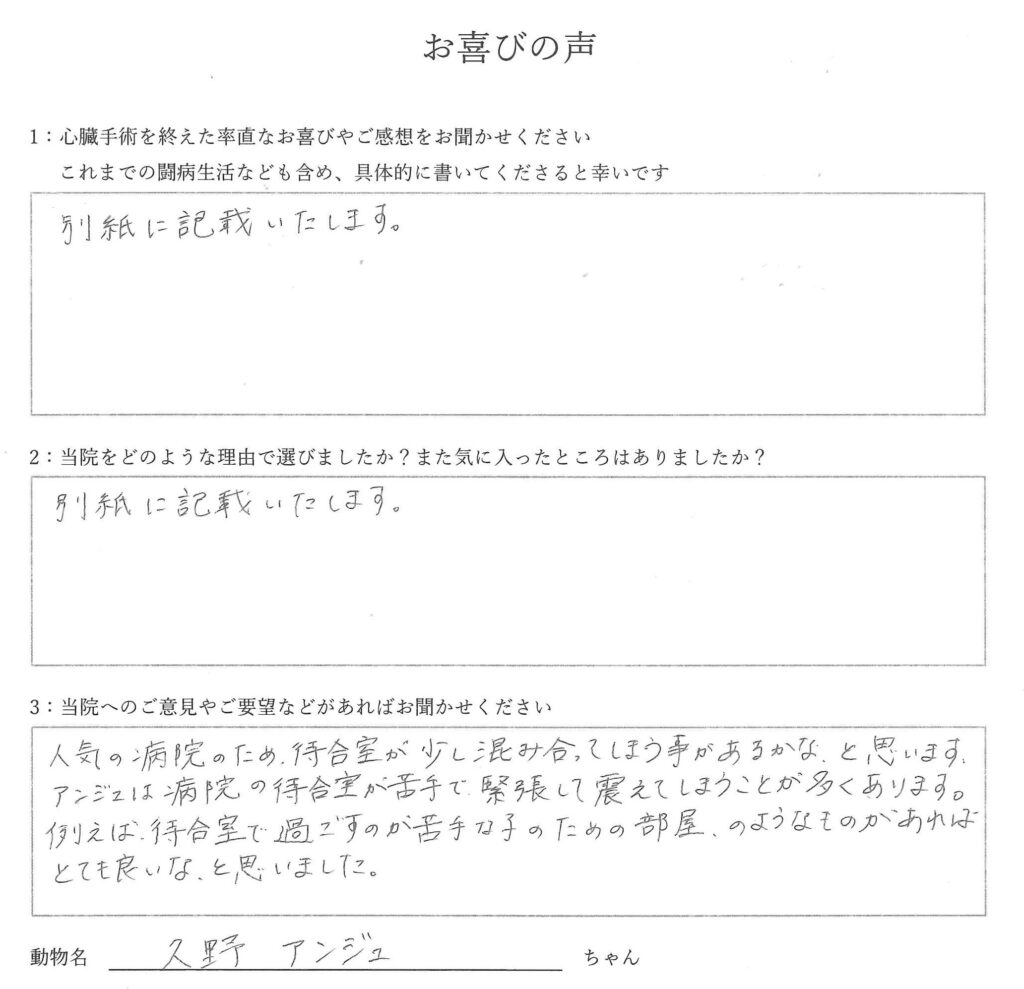 お喜びの声
1：心臓手術を終えた率直なお喜びやご感想をお聞かせください
これまでの闘病生活なども含め、具体的に書いてくださると幸いです
別紙に記載いたします。
2：当院をどのような理由で選びましたか？また気に入ったところはありましたか？
別紙に記載いたします。
3：当院へのご意見やご要望などがあればお聞かせください
人気の病院のため、待合室が少し混み合ってしまう事があるかな、と思います。
アンジュは病院の待合室が苦手で、緊張して震えてしまうことが多くあります。
例えば、待合室で過ごすのが苦手な子のための部屋、のようなものがあれば
とても良いな、と思いました。
動物名 久野 アンジュ ちゃん